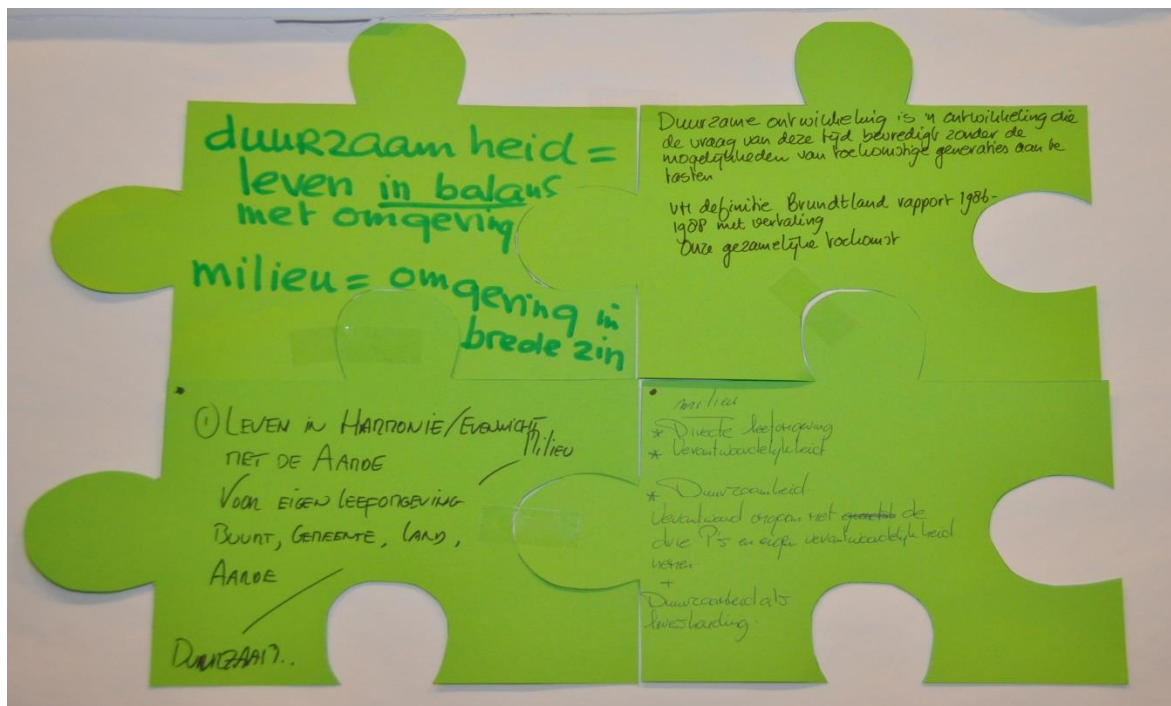 duurzaamheid =
leven in balans
met omgeving
milieu = omgeving in
brede zin
Duurzame ontwikkeling is 'n ontwikkeling die
de vraag van deze tijd bevredigt zonder de
mogelijkheden van toekomstige generaties aan te
tasten
uit definitie Brundtland rapport 1986-
1988 met vertaling
Onze gezamelijke toekomst
① LEVEN in HARMONIE/EVENWICHT
MET DE AARDE
Milieu
VOOR EIGEN LEEFOMGEVING
BUURT, GEMEENTE, LAND,
AARDE
DUURZAAM..
milieu
* Directe leefomgeving
* Verantwoordelijkheid
* Duurzaamheid
Verantwoord omgaan met de
drie P's en eigen verantwoordelijkheid
nemen
+
Duurzaamheid als
levenshouding.